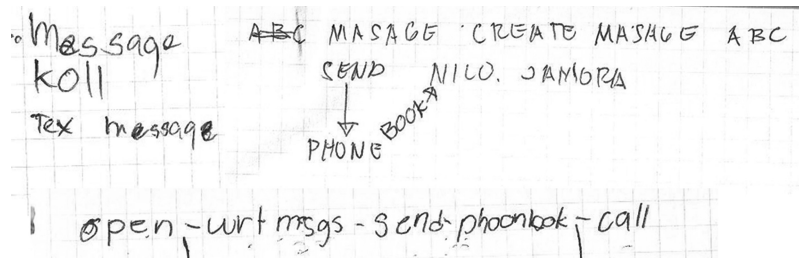 Message
koll
Tex message
ABC MASAGE CREATE MASAGE ABC
SEND NICO. JAMORA
PHONE BOOK
open-wrt msgs-send-phoonbook-call